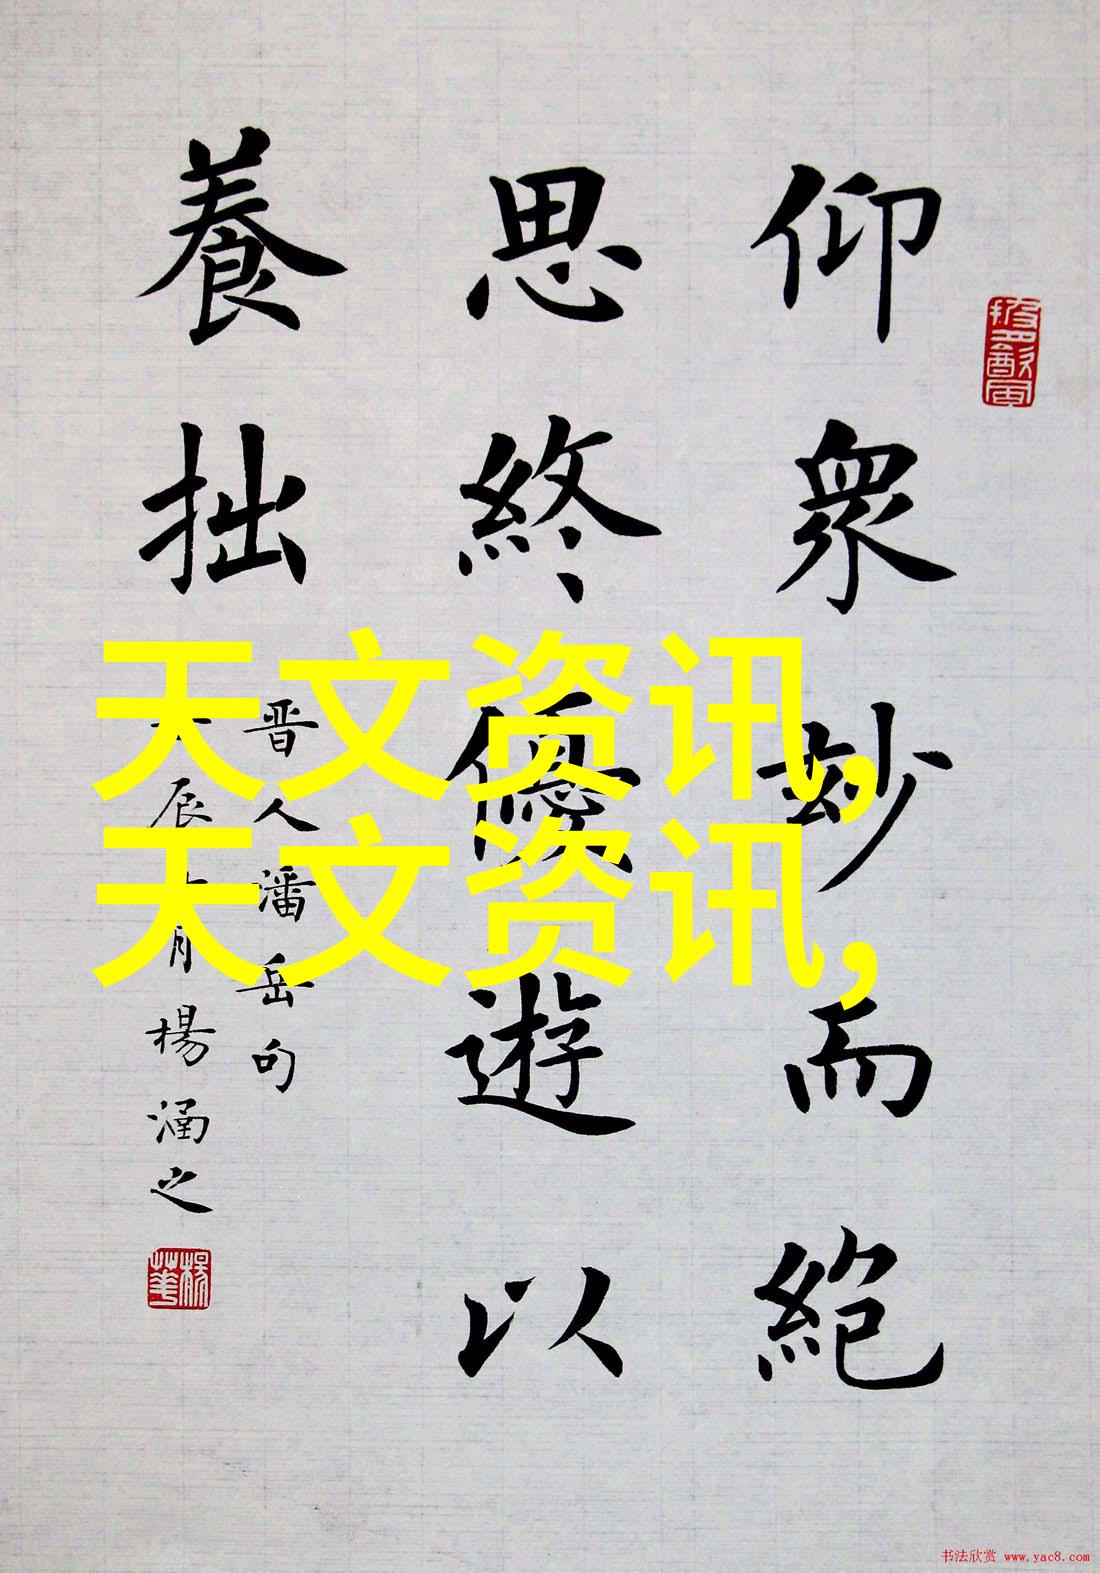 仰眾妙而絕
思終優遊以
養拙
晋人潘岳句
辰 月楊涵之
天文资讯,
天文资讯,
书法欣赏 www.yac8.com